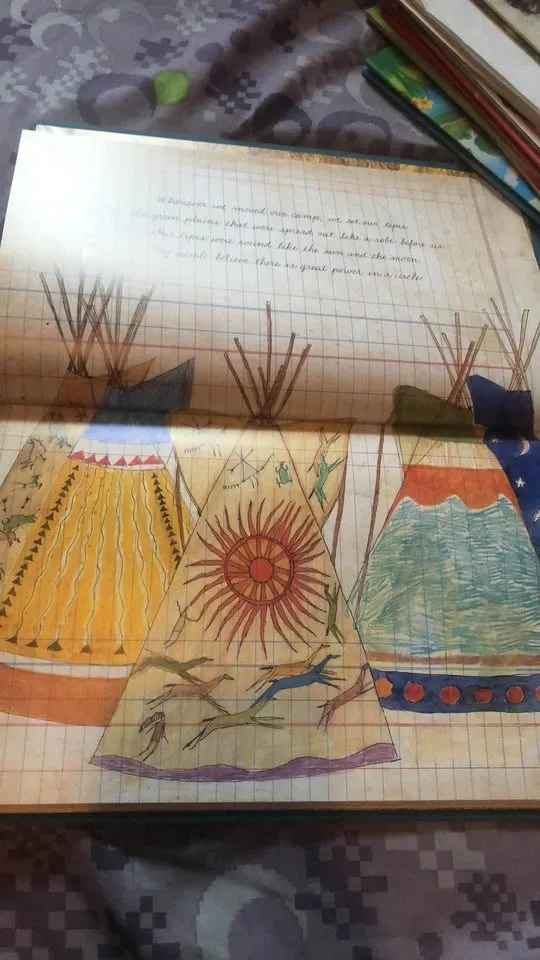 Whenever we moved our camp, we set our tipis
the green plains that were spread out like a robe before us.
Our tipis were round like the sun and the moon
My people believe there is great power in a circle.